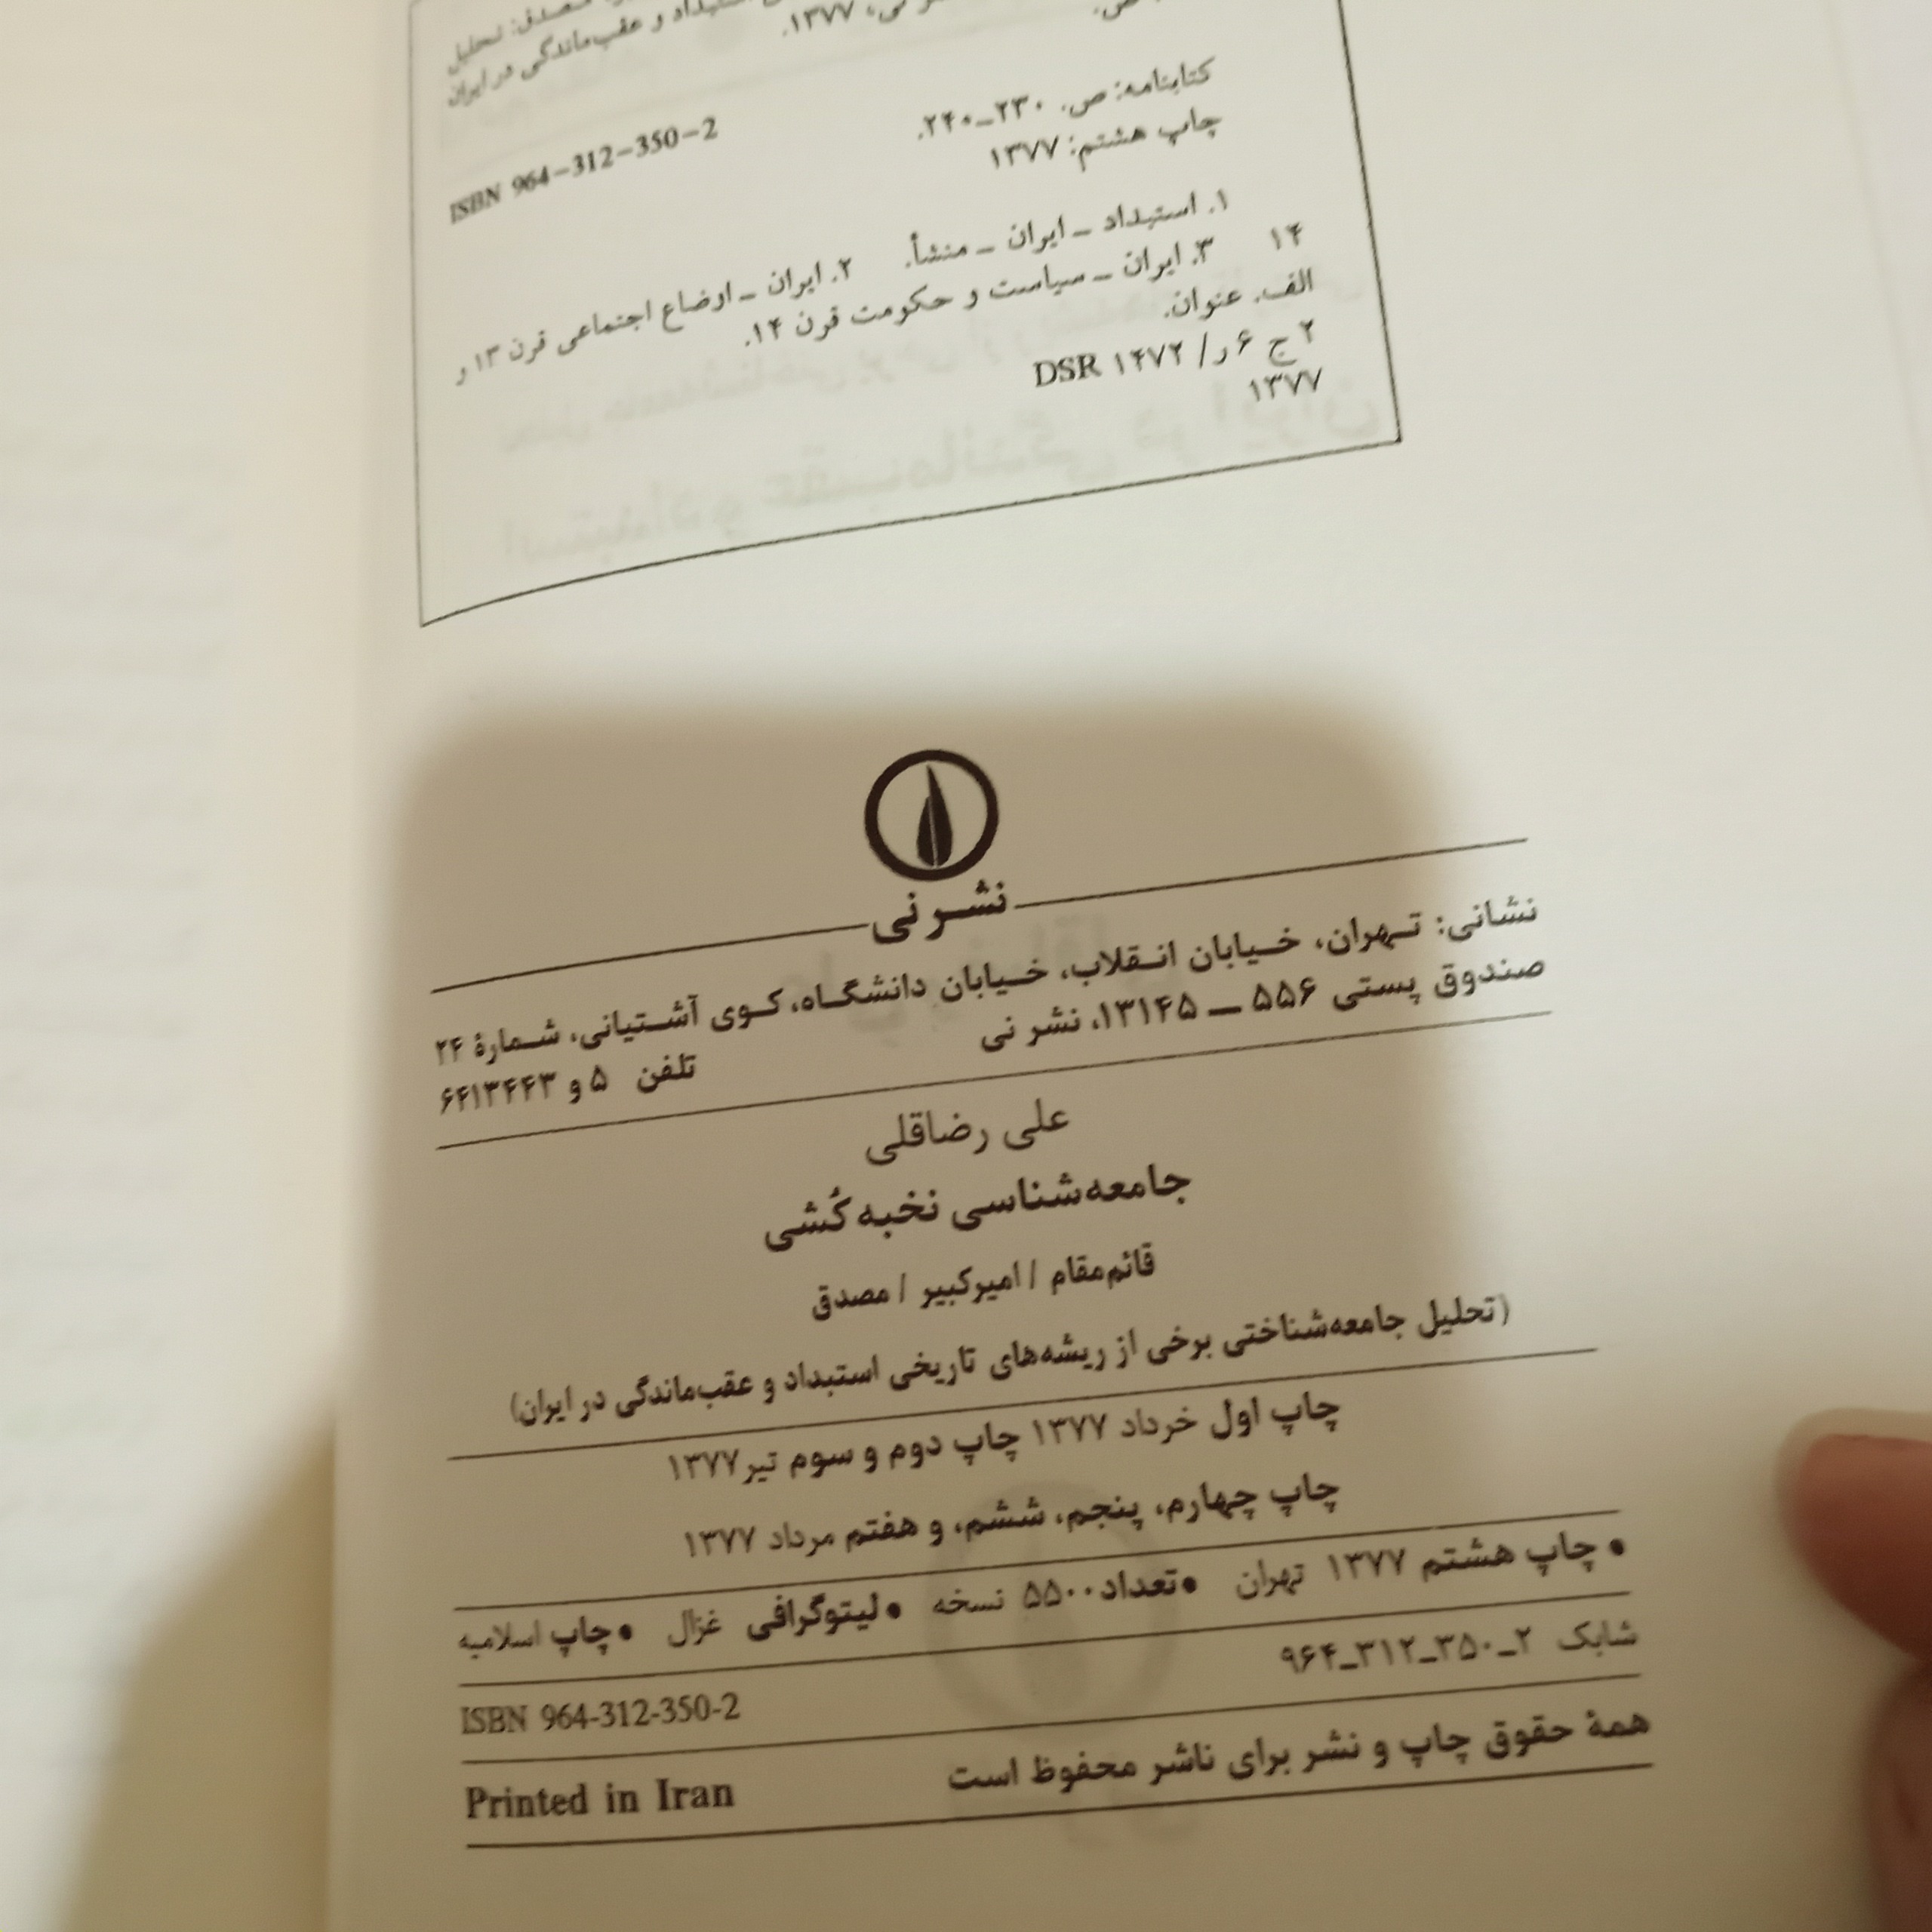 مصدق: تحلیل
استبداد و عقب‌ماندگی در ایران
نی، ۱۳۷۷.
ص.
کتابنامه: ص. ۲۳۰ــ۲۴۰.
چاپ هشتم: ۱۳۷۷
ISBN 964–312–350–2
۱. استبداد ــ ایران ــ منشأ. ۲. ایران ــ اوضاع اجتماعی قرن ۱۳ و
۱۴ ۳. ایران ــ سیاست و حکومت قرن ۱۴.
الف. عنوان.
۲ ج ۶ ر/ ۱۴۷۲ DSR
۱۳۷۷
نشر نی
نشانی: تهران، خیابان انقلاب، خیابان دانشگاه، کوی آشتیانی، شمارۀ ۲۴
صندوق پستی ۵۵۶ ــ ۱۳۱۴۵، نشر نی تلفن ۵ و ۶۴۱۳۴۴۳
علی رضاقلی
جامعه‌شناسی نخبه‌کُشی
قائم‌مقام / امیرکبیر / مصدق
(تحلیل جامعه‌شناختی برخی از ریشه‌های تاریخی استبداد و عقب‌ماندگی در ایران)
چاپ اول خرداد ۱۳۷۷ چاپ دوم و سوم تیر۱۳۷۷
چاپ چهارم، پنجم، ششم، و هفتم مرداد ۱۳۷۷
• چاپ هشتم ۱۳۷۷ تهران • تعداد ۵۵۰۰ نسخه • لیتوگرافی غزال • چاپ اسلامیه
شابک ۲ــ۳۵۰ــ۳۱۲ــ۹۶۴
ISBN 964-312-350-2
همۀ حقوق چاپ و نشر برای ناشر محفوظ است
Printed in Iran